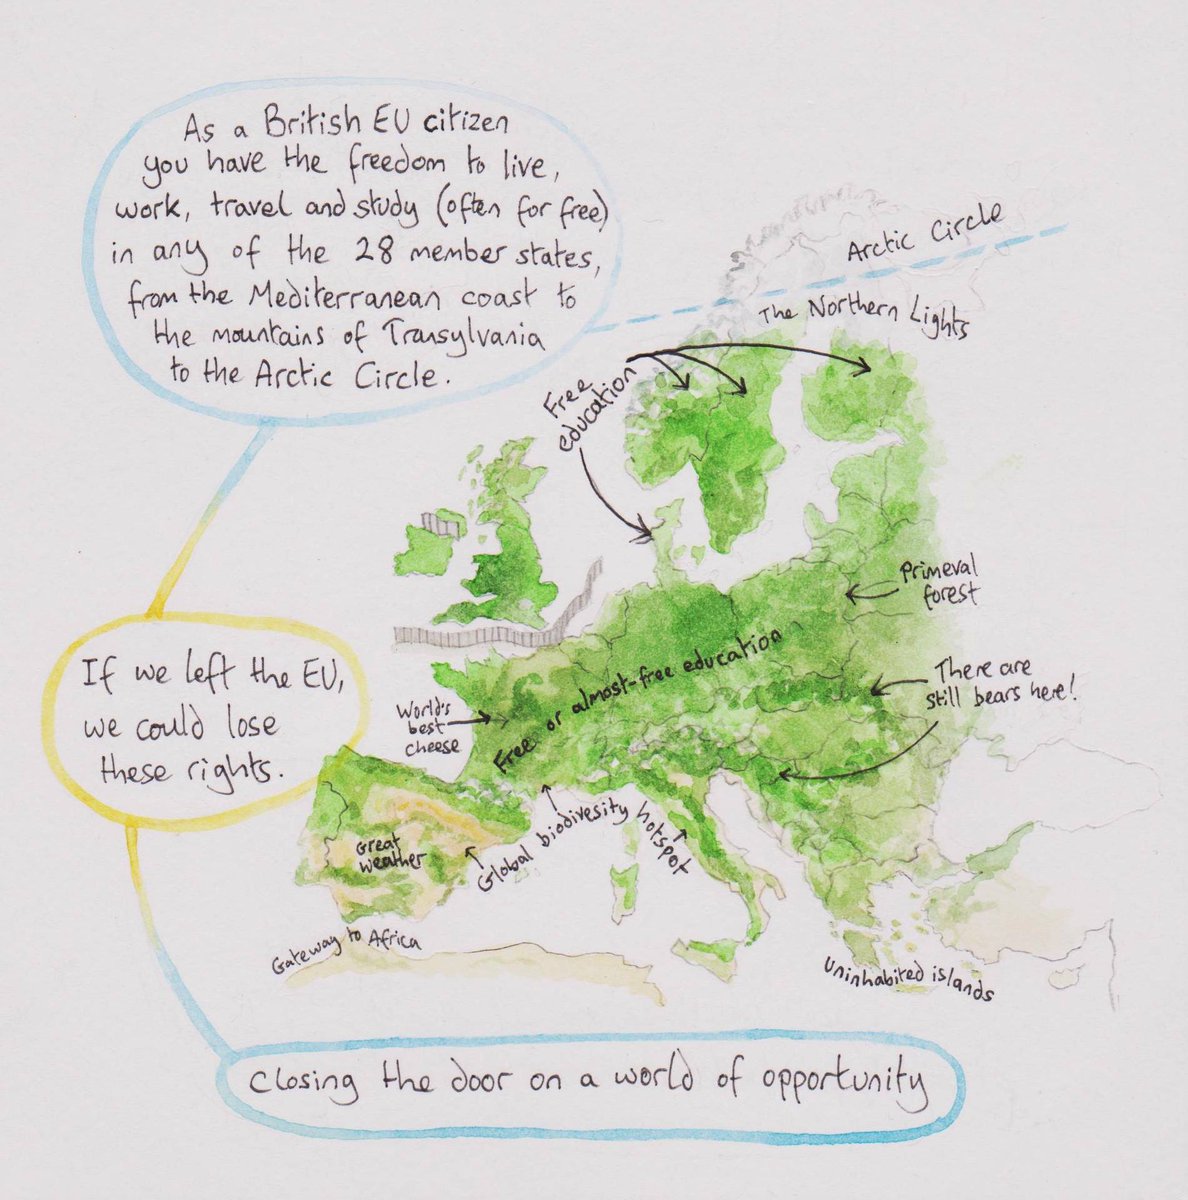 As a British EU citizen
you have the freedom to live,
work, travel and study (often for free)
in any of the 28 member states,
from the Mediterranean coast to
the mountains of Transylvania
to the Arctic Circle.
Arctic Circle
The Northern Lights
Free
education
Primeval
forest
There are
still bears here!
Free or almost-free education
If we left the EU,
we could lose
these rights.
World's
best
cheese
Great
weather
Global biodivesity hotspot
Gateway to Africa
Uninhabited islands
closing the door on a world of opportunity